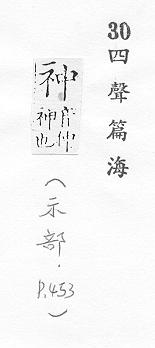 30 四聲篇海
音仲
神也
（示部．P.453）